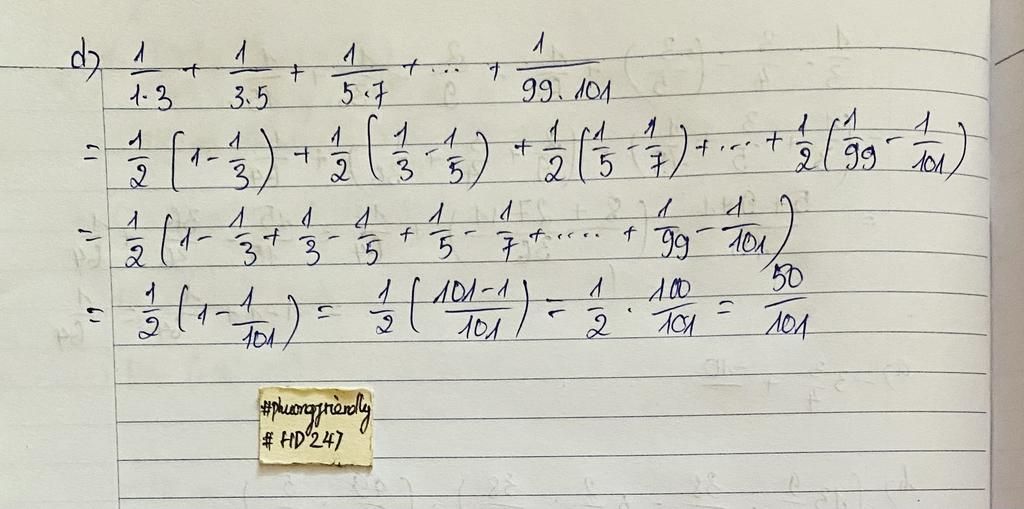 d) 1/(1·3) + 1/(3.5) + 1/(5·7) + ... + 1/(99.101)
= 1/2 (1 - 1/3) + 1/2 (1/3 - 1/5) + 1/2 (1/5 - 1/7) + ... + 1/2 (1/99 - 1/101)
= 1/2 (1 - 1/3 + 1/3 - 1/5 + 1/5 - 1/7 + ..... + 1/99 - 1/101)
= 1/2 (1 - 1/101) = 1/2 ((101-1)/101) = 1/2 · 100/101 = 50/101
#phuongfriendly
# HD 247